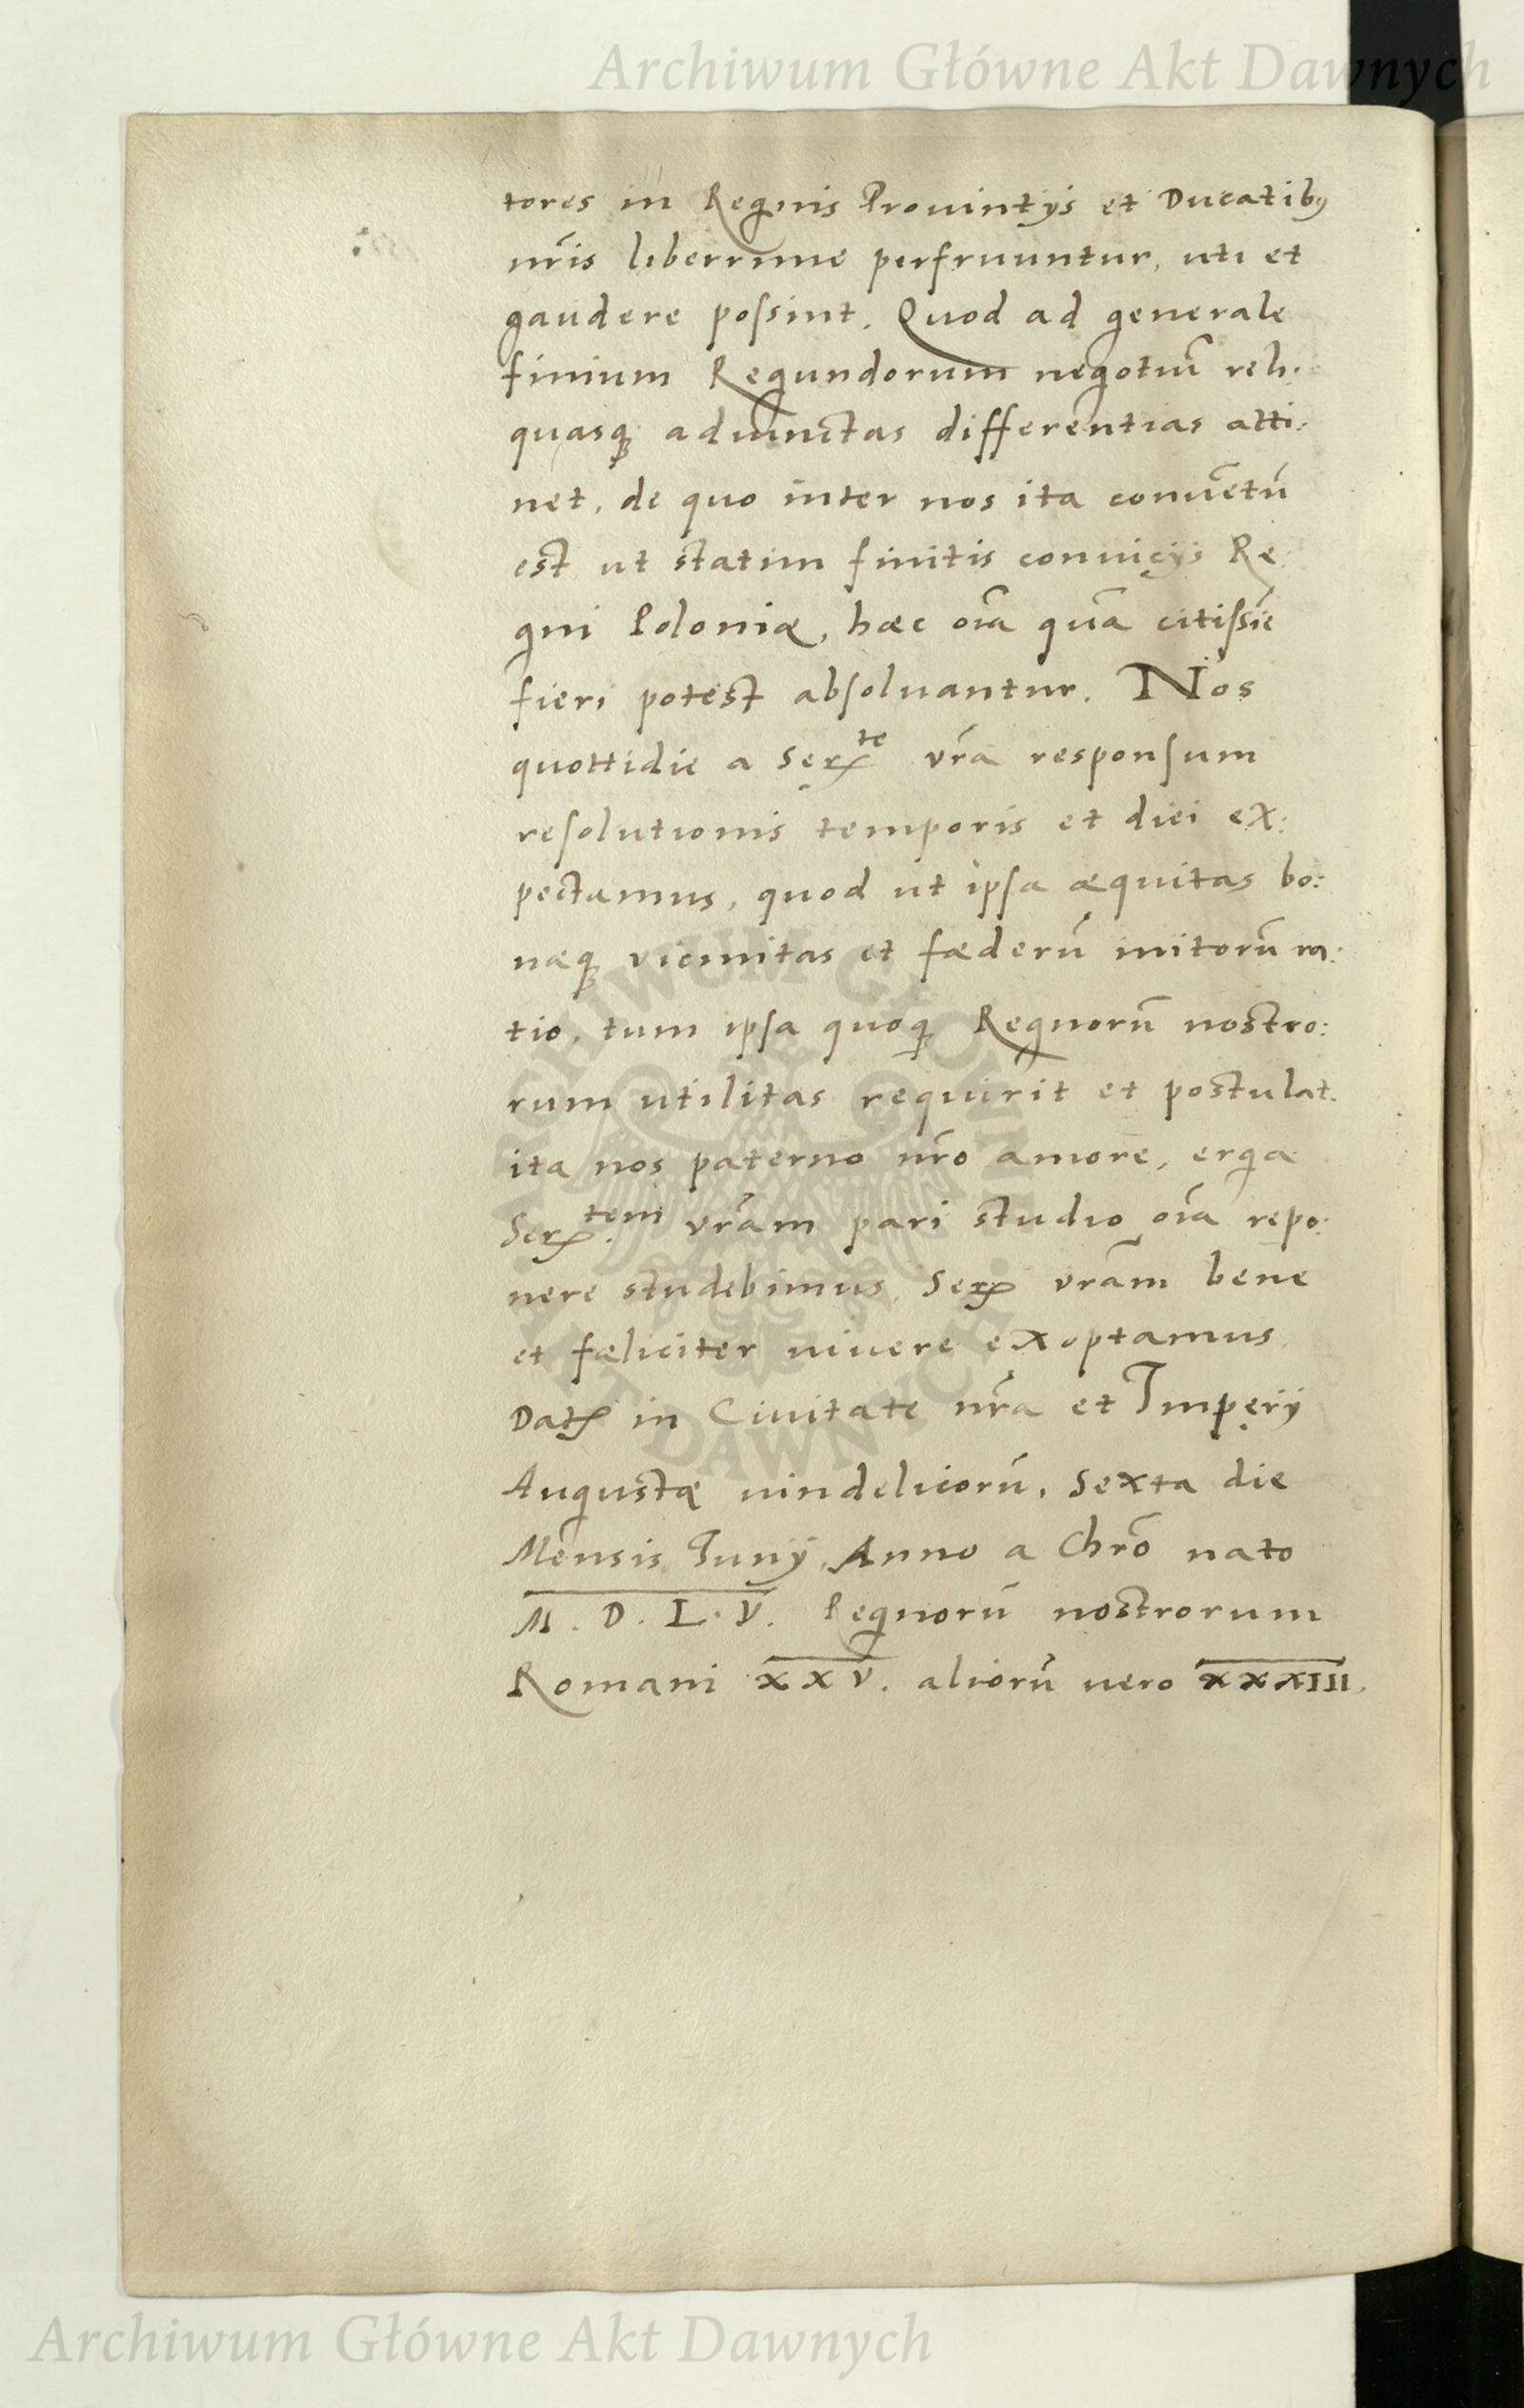 Archiwum Główne Akt Dawnych
tores in Regnis Prouintijs et Ducatibꝫ
nr̃is liberrime perfruuntur, uti et
gaudere poſsint. Quod ad generale
finium Regundorum negotiũ reli:
quasqꝫ adiunctas differentias atti:
net, de quo inter nos ita conuẽtũ
est ut statim finitis conuicijs Re
gni Poloniæ, hæc oĩa quã citiſsiẽ
fieri potest abſoluantur. Nos
quottidie a Serᵗᵉ vr̃a responſum
reſolutionis temporis et diei ex:
pectamus, quod ut ipſa æquitas bo:
næqꝫ vicinitas et fæderũ initorũ ra:
tio, tum ipſa quoqꝫ Regnorũ nostro:
rum utilitas requirit et postulat.
ita nos paterno nr̃o amore, erga
Serᵗᵉᵐ vr̃am pari studio oĩa repo:
nere studebimus. Ser vr̃am bene
et fæliciter uiuere exoptamus.
Dat in Ciuitate nr̃a et Imperij
Augustæ uindelicorũ. Sexta die
Mensis Junij. Anno a Chr̃o nato
M. D. L. V. Regnorũ nostrorum
Romani XXV. aliorũ uero XXXIII.
ARCHIWUM GŁÓWNE AKT DAWNYCH
Archiwum Główne Akt Dawnych